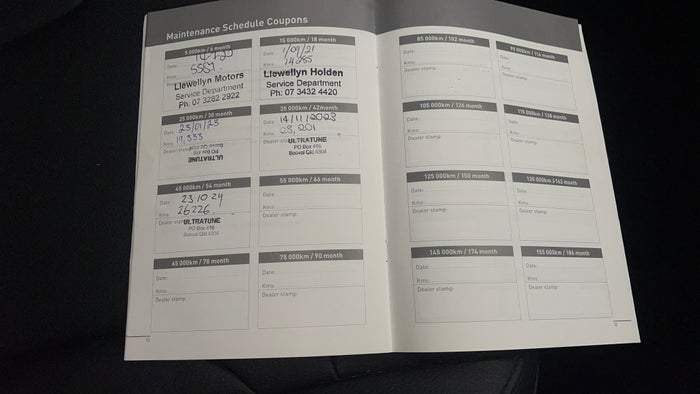 Maintenance Schedule Coupons
5 000km / 6 month
Date:
Kms: 5581
Llewellyn Motors
Service Department
Ph: 07 3282 2922
15 000km / 18 month
Date: 1/09/21
Kms: 14285
Llewellyn Holden
Service Department
Ph: 07 3432 4420
25 000km / 30 month
Date: 25/01/23
Kms: 19,533
Dealer stamp:
ULTRATUNE
PO Box 416
Booval Qld 4304
35 000km / 42month
Date: 14/11/2023
Kms:
Dealer stamp:
ULTRATUNE
PO Box 416
Booval Qld 4304
45 000km / 54 month
Date: 23.10.24
Kms: 26226
Dealer stamp:
ULTRATUNE
PO Box 416
Booval Qld 4304
55 000km / 66 month
Date:
Kms:
Dealer stamp:
65 000km / 78 month
Date:
Kms:
Dealer stamp:
75 000km / 90 month
Date:
Kms:
Dealer stamp:
85 000km / 102 month
Date:
Kms:
Dealer stamp:
95 000km / 114 month
Date:
Kms:
Dealer stamp:
105 000km / 126 month
Date:
Kms:
Dealer stamp:
115 000km / 138 month
Date:
Kms:
Dealer stamp:
125 000km / 150 month
Date:
Kms:
Dealer stamp:
135 000km / 162 month
Date:
Kms:
Dealer stamp:
145 000km / 174 month
Date:
Kms:
Dealer stamp:
155 000km / 186 month
Date:
Kms:
Dealer stamp: